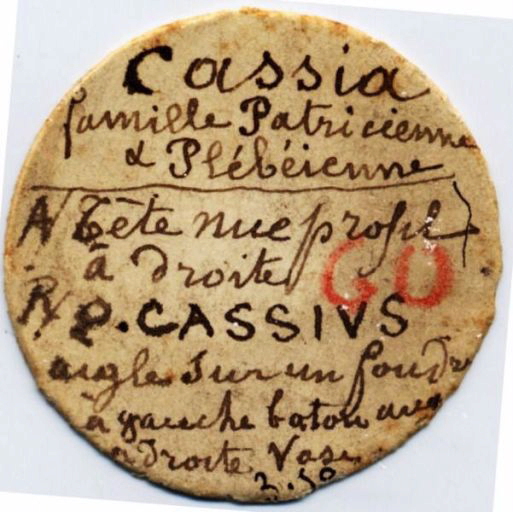 Cassia
famille Patricienne
& Plébéienne
A/ Tête nue profil
à droite
GO
R/ Q. CASSIVS
aigle sur un foudre
à gauche baton aug
a droite Vase
3.50